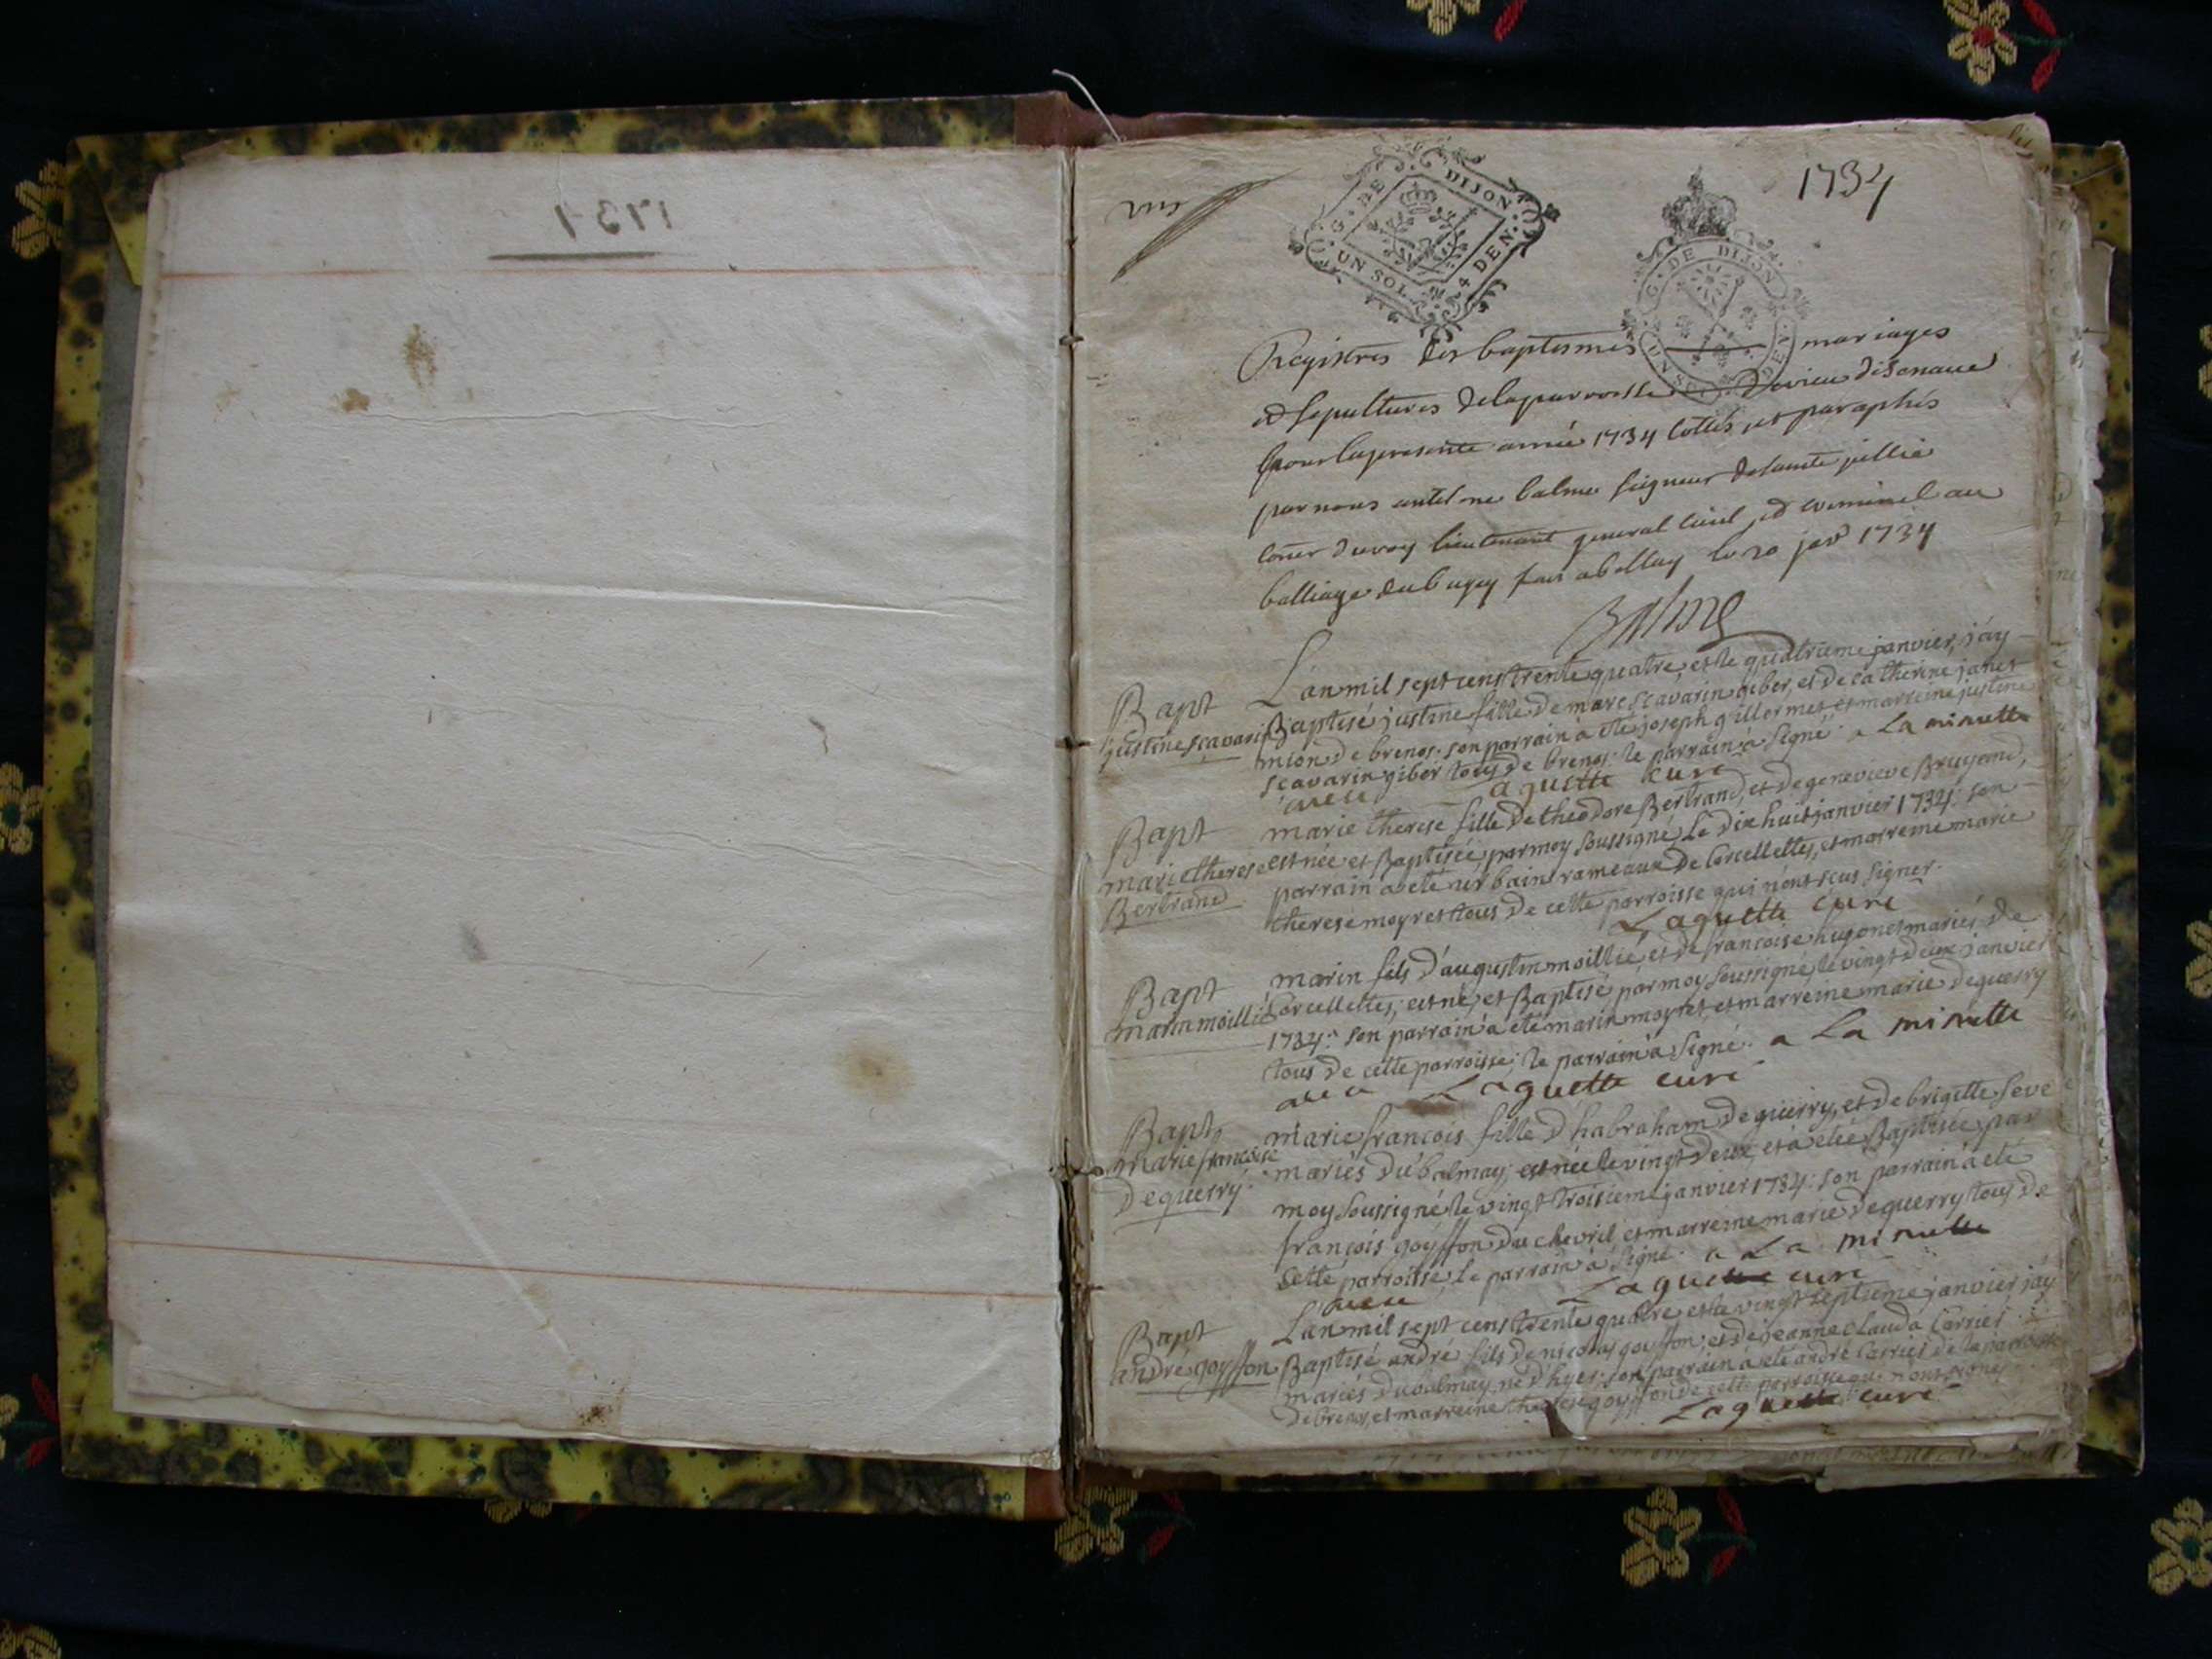 1734
G. DE DIJON
UN SOL 4 DEN.
G. DE DIJON
UN SOL DEN.
1734
Registres des baptesmes mariages
et sepultures de la parroisse de vieu disenave
pour la presente année 1734 cottés et paraphés
par nous balme seigneur de sainte jullie
coner du roy lieutenant general civil et criminel au
balliage du bugey fait a bellay le 20 jer 1734
Balme
Bapt
justine scavarin
L'an mil sept cens trente quatre, et le quatrieme janvier, j'ay
Baptisé justine fille de marc scavarin giber, et de catherine janet
mion de brenos. son parrain à eté joseph gillermet et marreine justine
scavarin giber tous de brenos: le parrain à signé a La minutte
Laguette curé
Bapt
marie therese
Bertrand
marie therese fille de theodore Bertrand, et de genevieve Bruyand,
est née et Baptisée par moy soussigné, le dix huit janvier 1734: son
parrain a eté urbain rameaux de Corcellettes, et marreine marie
therese moyret tous de cette parroisse qui n'ont sçus signer.
Laguette curé
Bapt
marin moillie
marin fils d'augustin moillie, et de francoise hugonet mariés de
Corcellettes, est né, et Baptisé par moy soussigné, le vingt deux janvier
1734: son parrain à eté marin moyret, et marreine marie dequerry
tous de cette parroisse; le parrain à signé. a La minutte
Laguette curé
Bapt
marie francoise
Dequerry.
marie francois fille d'habraham Dequerry, et de brigitte seve
mariés du balmay, est née le vingt deux, et à eté Baptisée par
moy soussigné le vingt troisieme janvier 1734: son parrain à eté
françois goyffon du chevril et marreine marie dequerry tous de
cette parroisse, le parrain à signé. a La minutte
Laguette curé
Bapt
andré goyffon
L'an mil sept cens trente quatre et le vingt septieme janvier j'ay
Baptisé andré fils de nicolas goyffon, et de jeanne Clauda Carrier
mariés du balmay, né d'hyer: son parrain à eté andré Carrier de la parroisse
de brenos, et marreine therese goyffon de cette parroisse qui n'ont signé
Laguette curé